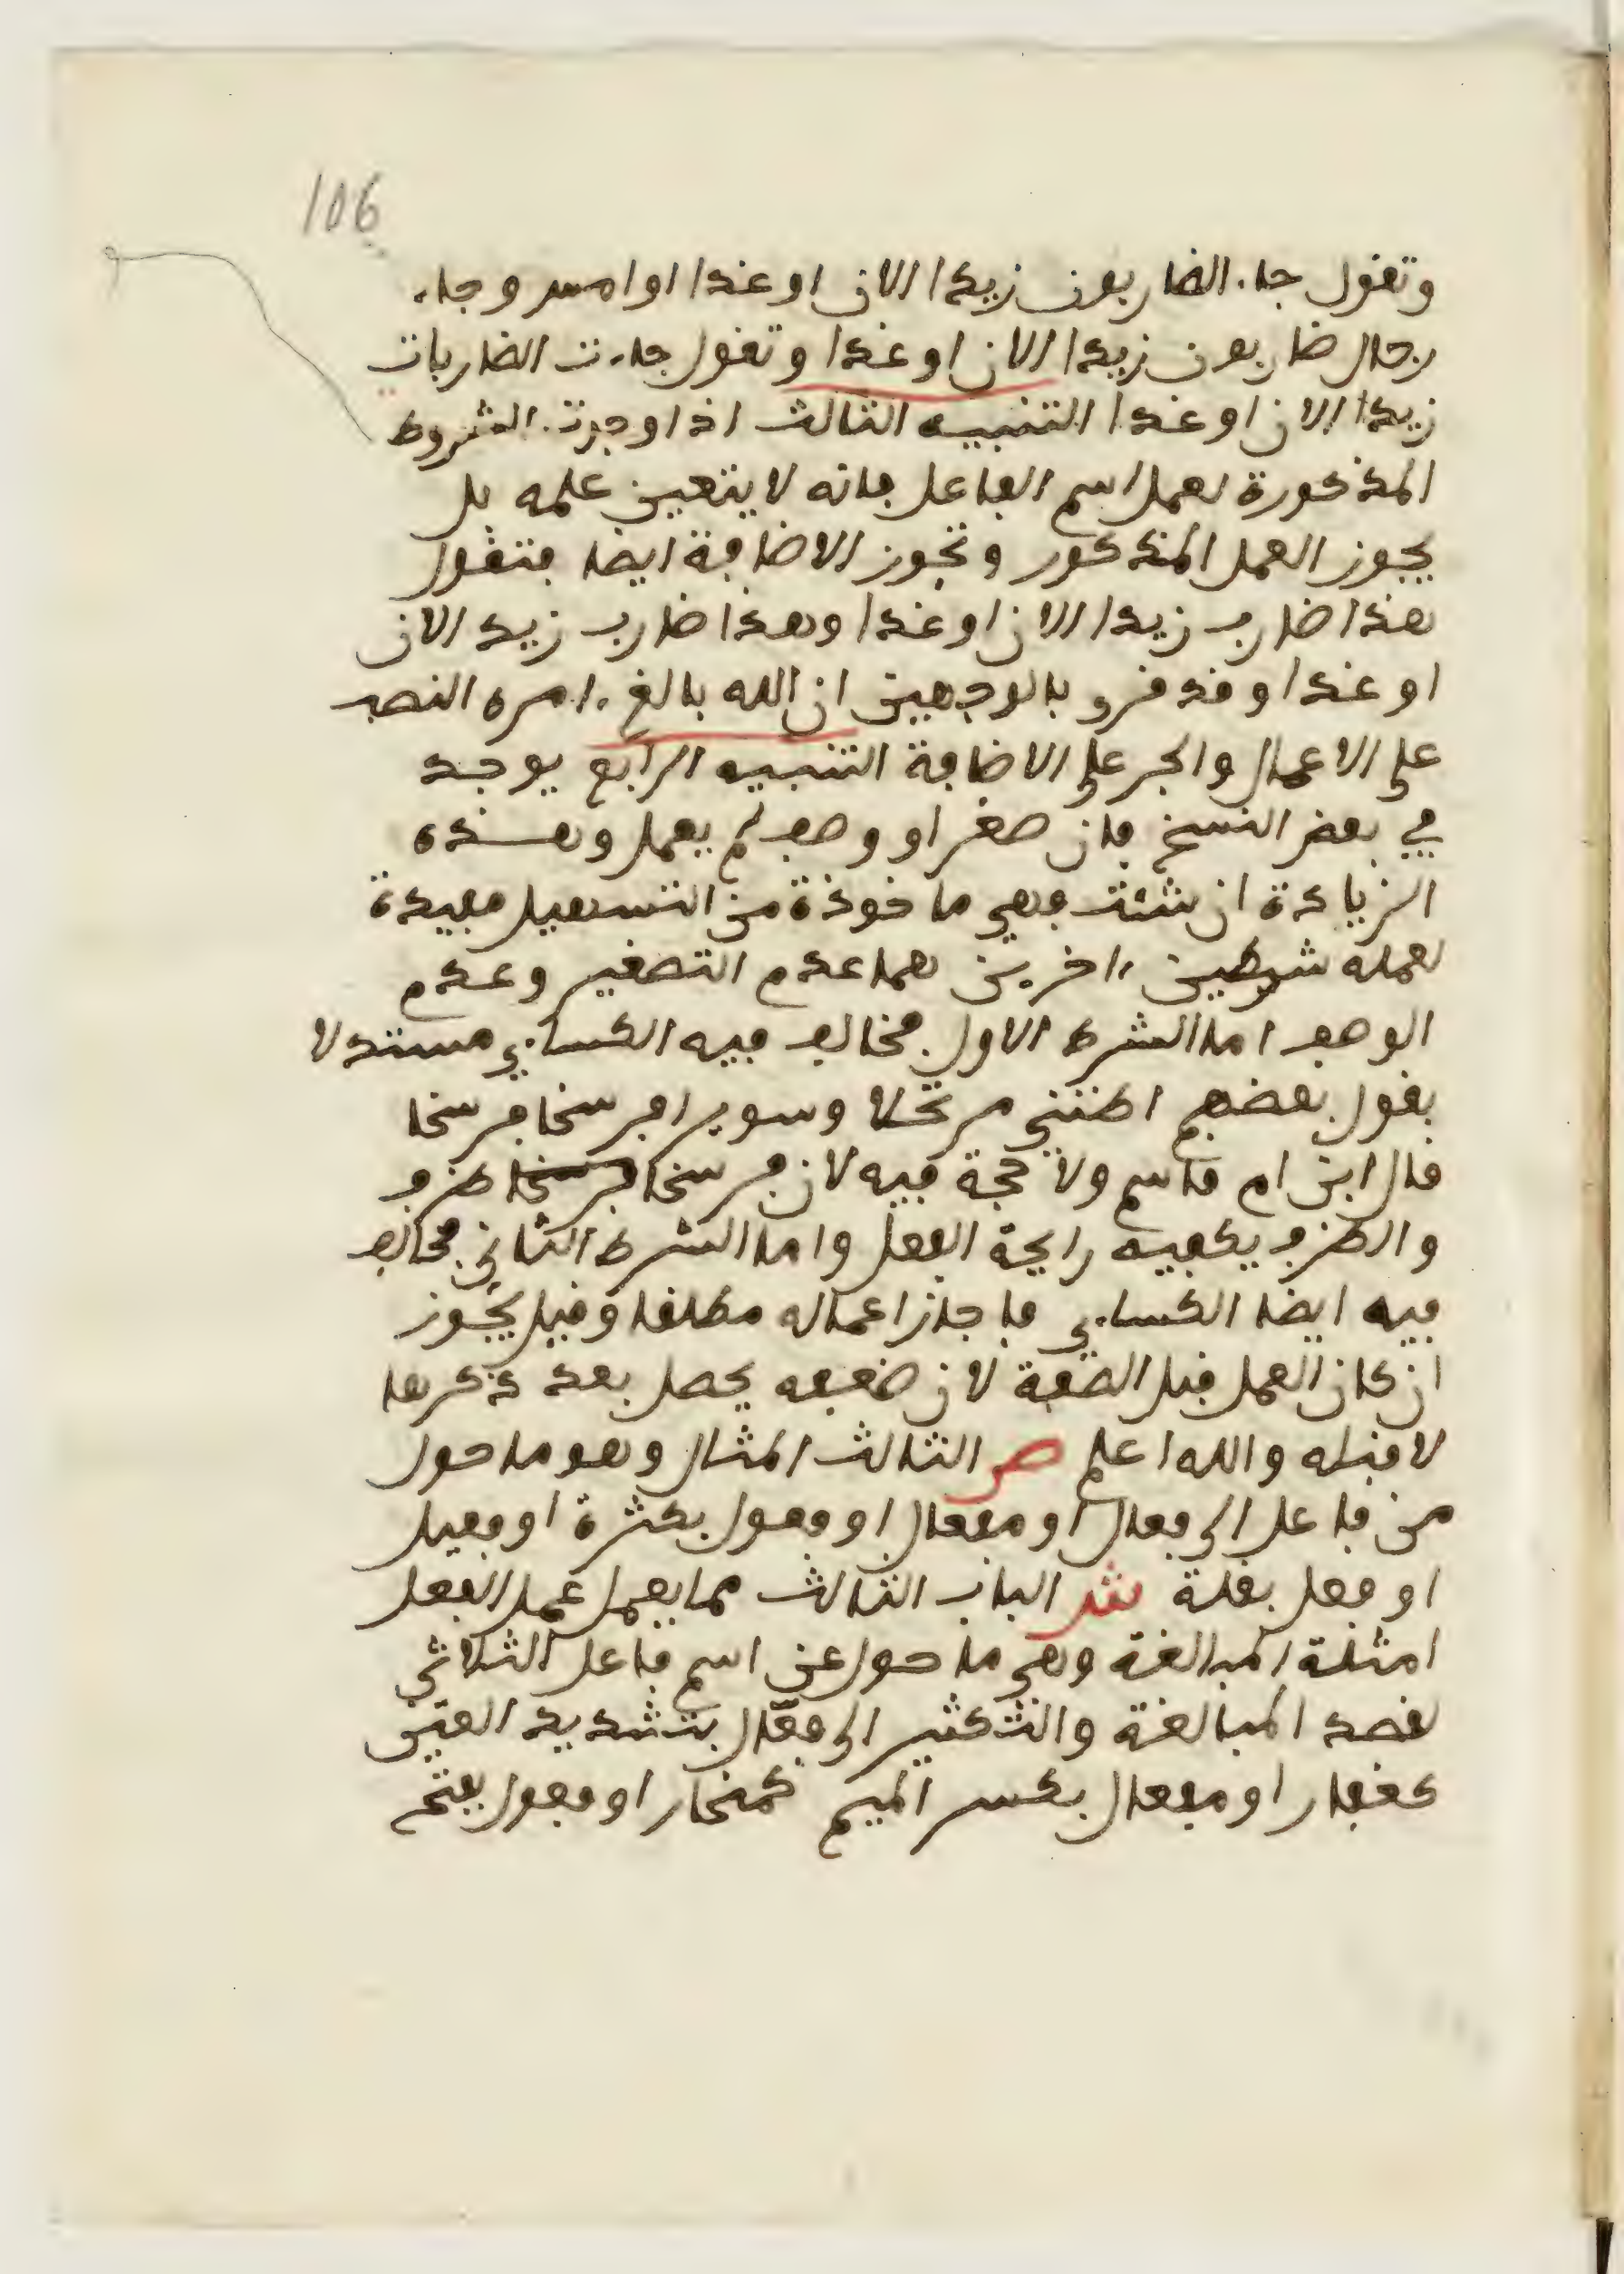 106
وتقول جاء الضاربون زيدا الان او غدا او امس وجاء
رجال ضاربون زيدا الان او غدا وتقول جاءت الضاربات
زيدا الان او غدا التنبيه الثالث اذا وجدت الشروط
المذكورة لعمل اسم الفاعل فانه لا يتعين علمه بل
يجوز العمل المذكور وتجوز الاضافة ايضا فتقول
هذا ضارب زيدا الان او غدا وهذا ضارب زيد الان
او غدا وقد قرو بالوجهين ان الله بالغ امره النصب
على الاعمال والجر على الاضافة التنبيه الرابع يوجد
في بعض النسخ فان صغر او وصف لم يعمل وهذه
الزيادة ان شئت فهي ماخوذة من التسهيل مفيدة
لعمله شرطين اخرين هما عدم التصغير وعدم
الوصف اما الشرط الاول فخالف فيه الكساءي مستدلا
بقول بعضهم اظنني مرتحلا وسويرا فرسخا فرسخا
قال ابن ام قاسم ولا حجة فيه لان فرسخا فرسخا ظرف
والظرف يكفيه رايحة الفعل واما الشرط الثاني فخالف
فيه ايضا الكساءي فاجاز اعماله مطلقا وقيل يجوز
ان كان العمل قبل الصفة لان ضعفه يحصل بعد ذكرها
لا قبله والله اعلم ص الثالث المثال وهو ما حول
من فاعل الى فعال او مفعال او فعول بكثرة او فعيل
او فعل بقلة ش الباب الثالث مما يعمل عمل الفعل
امثلة المبالغة وهي ما حول عن اسم فاعل الثلاثي
لقصد المبالغة والتكثير الى فعّال بتشديد العين
كغفار او مفعال بكسر الميم كمنحار او فعول بفتح